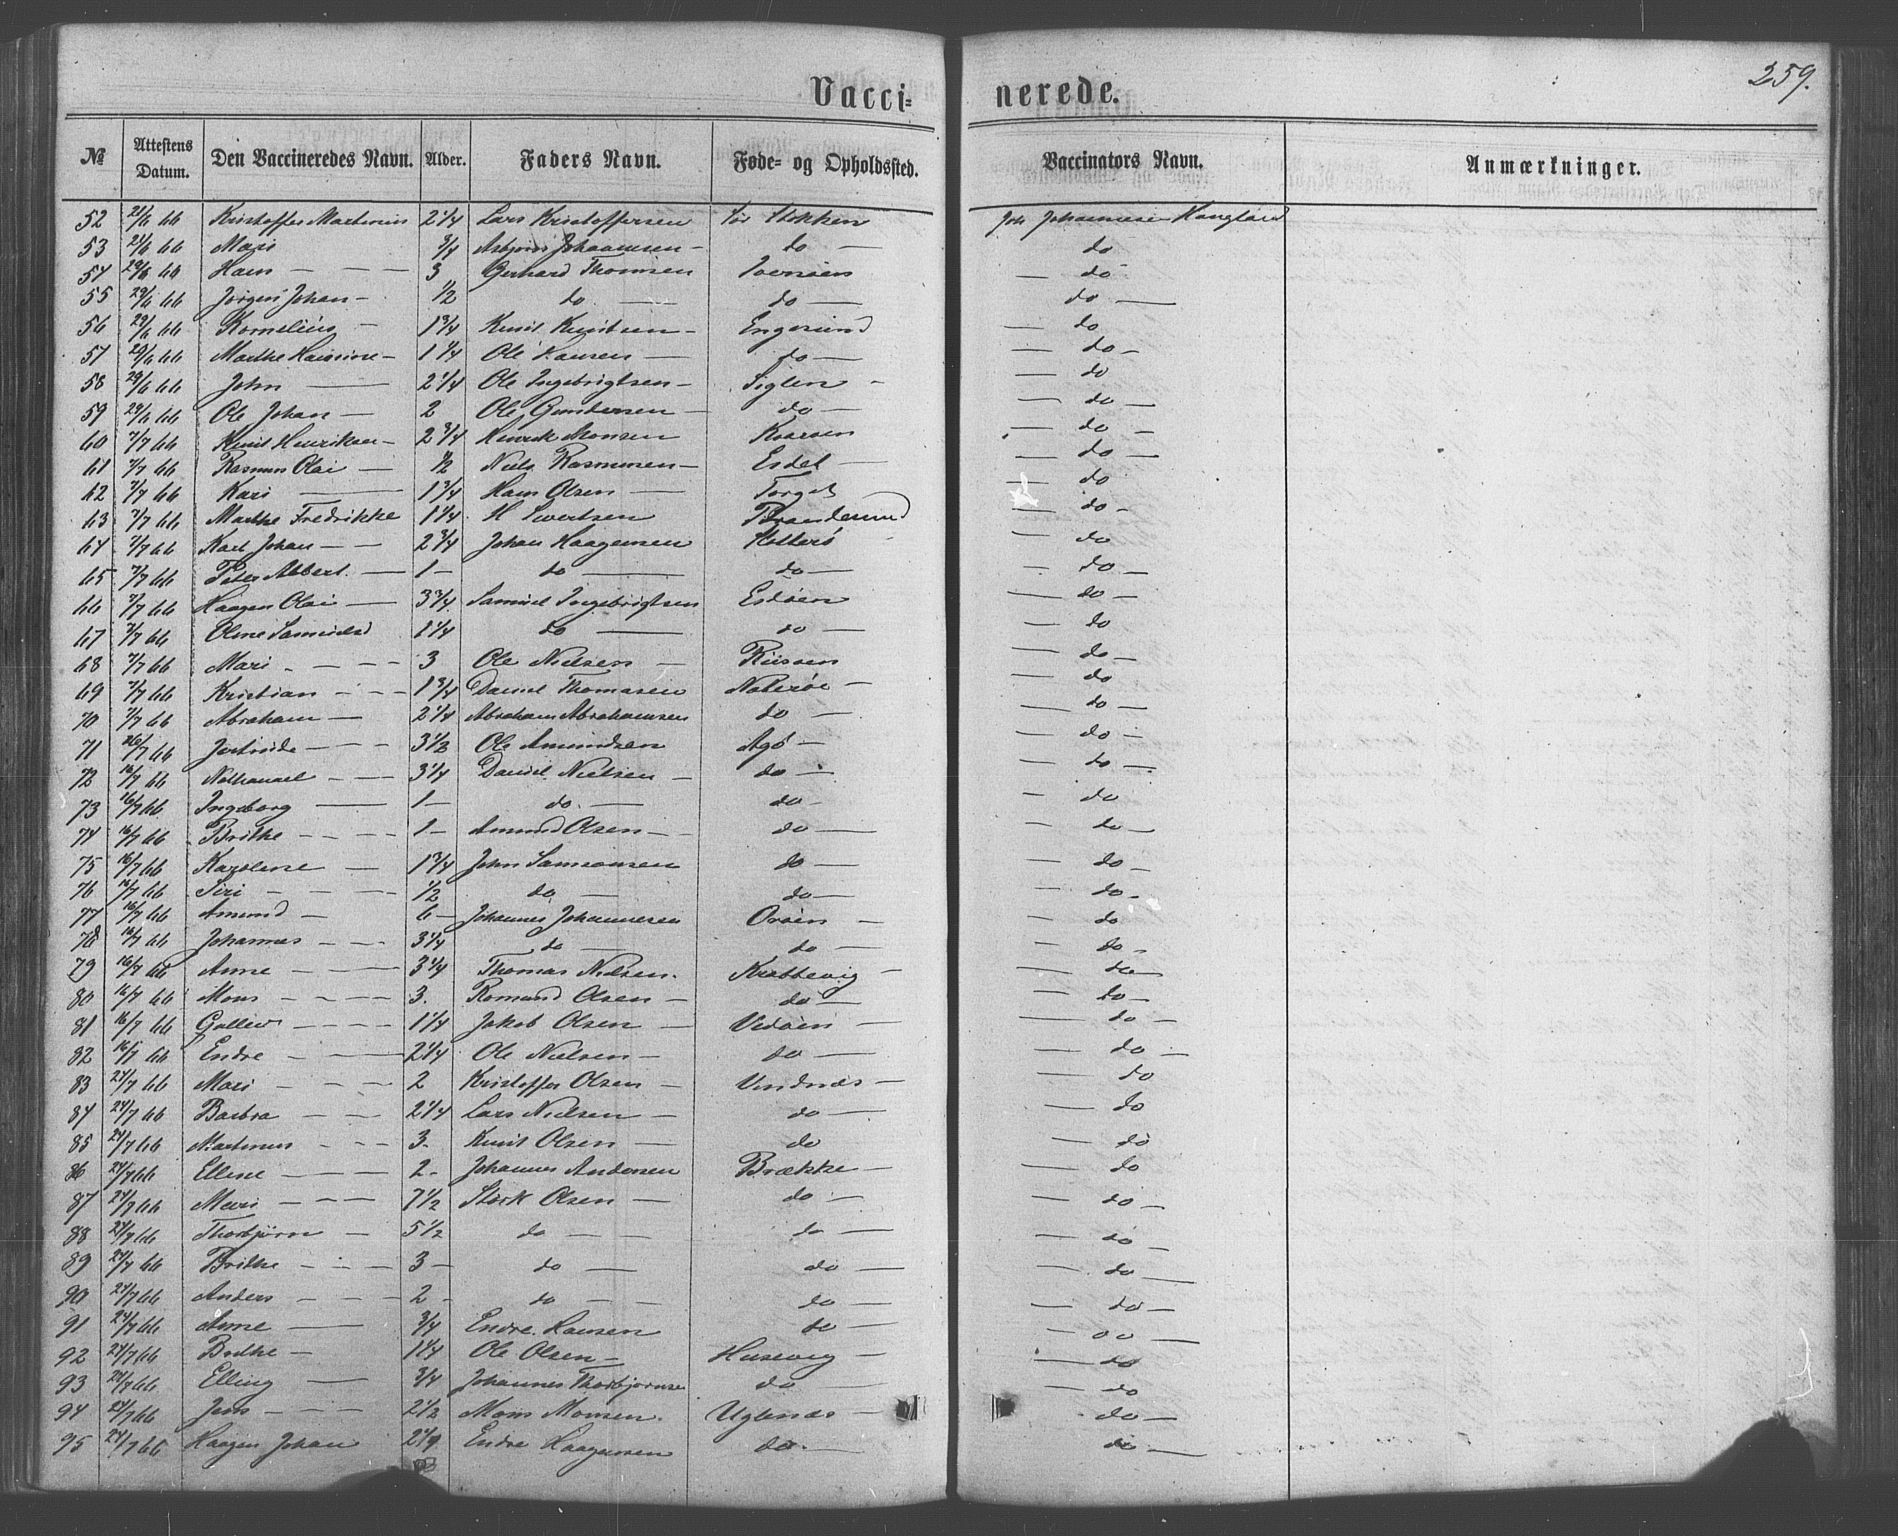 259.
Vacci= nerede.
№ Attestens Datum. Den Vaccineredes Navn. Alder. Faders Navn. Føde- og Opholdssted. Vaccinators Navn. Anmærkninger.
52 21/6 66 Kristoffer Martinius 2 1/4 Lars Kristoffersen Stokken Joh Johannesen
53 21/6 66 3/4 Asbjørn Johannesen - do - do
54 29/6 66 Hans - - - 3 Gerhard Thomsen - do -
55 29/6 66 Jørgen Johan - 1/2 do. - do - do -
56 29/6 66 Kornelius - 1 3/4 Knut Knutsen - Engesund - do
57 29/6 66 Marthe Hansine - 1 1/4 Ole Hansen - do - - do -
58 29/6 66 John - 2 1/4 Ole Ingebrigtsen - Siglen - - do
59 29/6 66 Ole Johan - 2 Ole Gundersen - do - - do -
60 7/7 66 Knut Henriksen - 2 3/4 Henrik Monsen - do -
61 7/7 66 Rasmus Olai - 1/2 Niels Rasmusen - Esdet - - do -
62 7/7 66 Kari - 1 3/4 Hans Olsen - Torget do
63 7/7 66 Marthe Fredrikke 1 1/4 H Sivertsen Brandesund - do -
64 7/7 66 Karl Johan - - 2 3/4 Johan Haagensen - do
65 7/7 66 Peter Albert. - 1 - do - do - - do -
66 7/7 66 Haagen Olai - 3 3/4 Samuel Ingebrigtsen Esdøen - do -
67 7/7 66 Oline Samuelsd 1 1/4 do - do - - do
68 7/7 66 Mari - - - - 3 Ole Nielsen - - do -
69 7/7 66 Kristian - - - 1 3/4 Daniel Thomasen Noterøe - - do
70 7/7 66 Abraham - 2 1/4 Abraham Abrahamsen do - - do -
71 26/7 66 Jertrude - - - 3 1/2 Ole Amundsen Agø - - do -
72 16/7 66 Nathanael - 3 1/4 Daniel Nielsen - do - - do -
73 16/7 66 Ingeborg - 1 - do. - do - - do
74 16/7 66 Brithe - - - - 1 - Amund Olsen - do - - do -
75 16/7 66 Karolene - 1 3/4 John Samsonsen do - - do -
76 16/7 66 Siri - - - - 1/2 do - do - - do -
77 16/7 66 Amund - 6 - Johannes Johannesen Orøen - - do
78 16/7 66 Johannes - - - 3 1/4 do - do - - do -
79 16/7 66 Anne - - - 3 1/4 Thomas Nielsen. Krabbevig - - do -
80 16/7 66 Mons - - - - 3. Romund Olsen - do - - do -
81 16/7 66 - - - - 1 1/4 Jakob Olsen - Vedøen - - do -
82 16/7 66 Endre - - - 2 1/4 Ole Nielsen - do - - do -
83 24/7 66 Mari - - - - 2 Kristoffer Olsen - Vindnæs - - do
84 24/7 66 Barbra - - - 2 1/4 Lars Nielsen - do - - do
85 24/7 66 Martinus - - - 3. Knut Olsen - do - do
86 24/7 66 Elline - - 2 - Johannes Andersen Brække - - do
87 24/7 66 Mari - - - 7 1/2 Størk Olsen - do - - do -
88 24/7 66 Thorbjørn - - 5 1/2 do - do - - do -
89 24/7 66 Brithe - - - 3 - do - do - - do -
90 24/7 66 Anders - - - 2 - do - do - - do -
91 24/7 66 Anne - 3/4 Endre Hansen do - - do -
92 24/7 66 Brithe - 1 1/4 Ole Olsen - Husevig - - do
93 24/7 66 Elling - 3/4 Johannes Thorbjørnse do - - do
94 24/7 66 Jens - - - 2 1/2 Mons Monsen. Uglenæs - - do -
95 24/7 66 Haagen Johan Endre Haagensen do. - do -